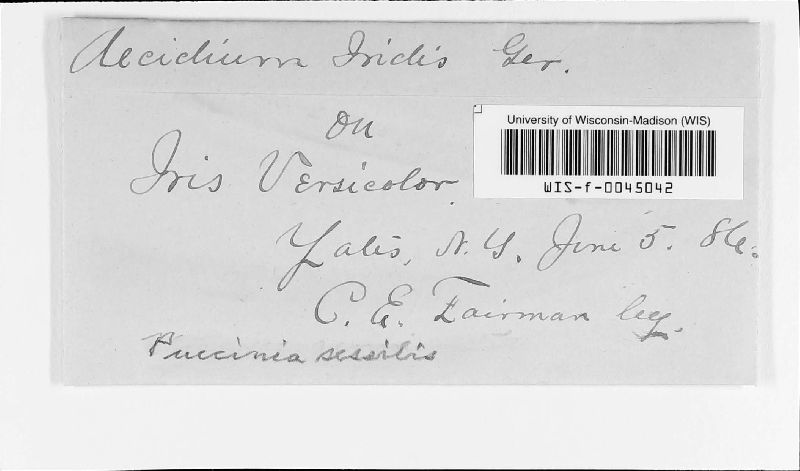 Aecidium Iridis Ger.
on
Iris Versicolor
Yates, N.Y. June 5. 86.
C. E. Fairman leg.
Puccinia sessilis
University of Wisconsin-Madison (WIS)
WIS-f-0045042